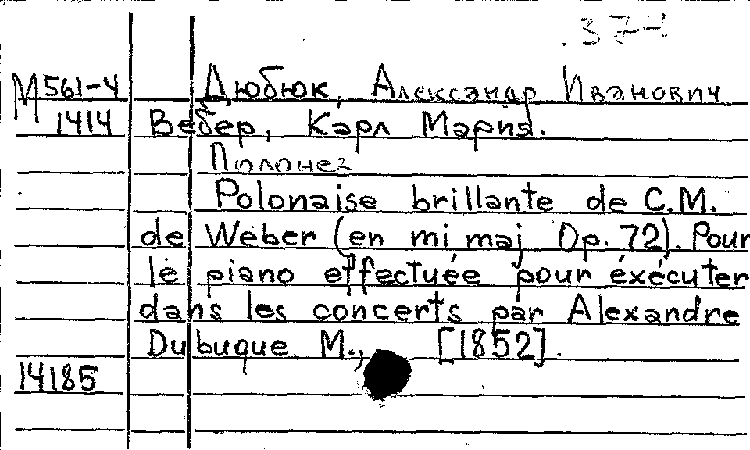 374
М 561-4 Дюбюк, Александр Иванович
1414 Вебер, Карл Мария.
Полонез
Polonaise brillante de C.M.
de Weber (en mi maj Op. 72). Pour
le piano effectuée pour éxécuter
dans les concerts par Alexandre
Dubuque M., [1852].
14185